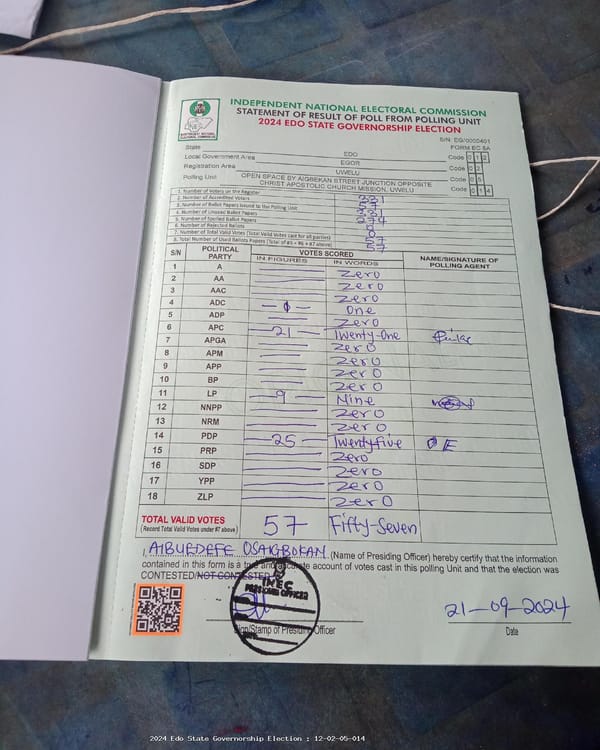 INDEPENDENT NATIONAL ELECTORAL COMMISSION
STATEMENT OF RESULT OF POLL FROM POLLING UNIT
2024 EDO STATE GOVERNORSHIP ELECTION
S/N: EG/0000401
FORM EC 8A
State EDO Code 0 1 2
Local Government Area EGOR Code 0 2
Registration Area UWELU Code 0 5
Polling Unit OPEN SPACE BY AIGBEKAN STREET JUNCTION OPPOSITE CHRIST APOSTOLIC CHURCH MISSION, UWELU Code 0 1 4
1. Number of Voters on the Register 331
2. Number of Accredited Voters 57
3. Number of Ballot Papers Issued to the Polling Unit 331
4. Number of Unused Ballot Papers 274
5. Number of Spoiled Ballot Papers 0
6. Number of Rejected Ballots 0
7. Number of Total Valid Votes (Total Valid Votes cast for all parties) 57
8. Total Number of Used Ballots Papers (Total of #5 + #6 + #7 above) 57
S/N POLITICAL PARTY VOTES SCORED NAME/SIGNATURE OF POLLING AGENT
IN FIGURES IN WORDS
1 A Zero
2 AA Zero
3 AAC Zero
4 ADC One
5 ADP Zero
6 APC 21 Twenty-One
7 APGA Zero
8 APM Zero
9 APP Zero
10 BP Zero
11 LP 9 Nine
12 NNPP Zero
13 NRM Zero
14 PDP 25 Twentyfive O E
15 PRP Zero
16 SDP Zero
17 YPP Zero
18 ZLP Zero
TOTAL VALID VOTES 57 Fifty-Seven
(Record Total Valid Votes under #7 above)
I, AIBUEDEFE OSAIGBOKAN (Name of Presiding Officer) hereby certify that the information
contained in this form is a true and accurate account of votes cast in this polling Unit and that the election was
CONTESTED/NOT CONTESTED
INEC
PRESIDING OFFICER
21-09-2024
Sign/Stamp of Presiding Officer
Date
2024 Edo State Governorship Election : 12-02-05-014